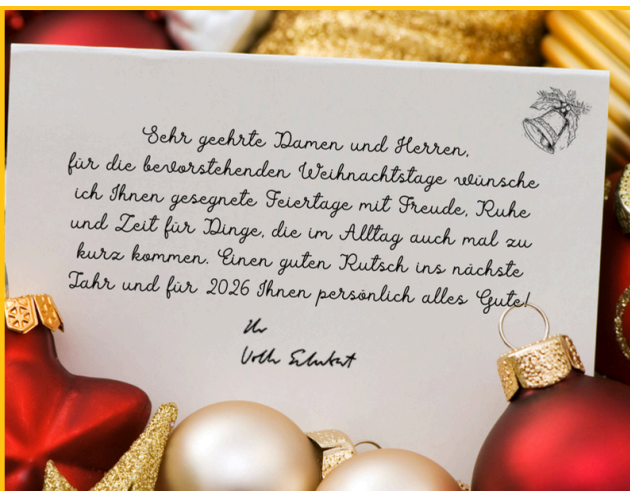 Sehr geehrte Damen und Herren,
für die bevorstehenden Weihnachtstage wünsche
ich Ihnen gesegnete Feiertage mit Freude, Ruhe
und Zeit für Dinge, die im Alltag auch mal zu
kurz kommen. Einen guten Rutsch ins nächste
Jahr und für 2026 Ihnen persönlich alles Gute!
Ihr